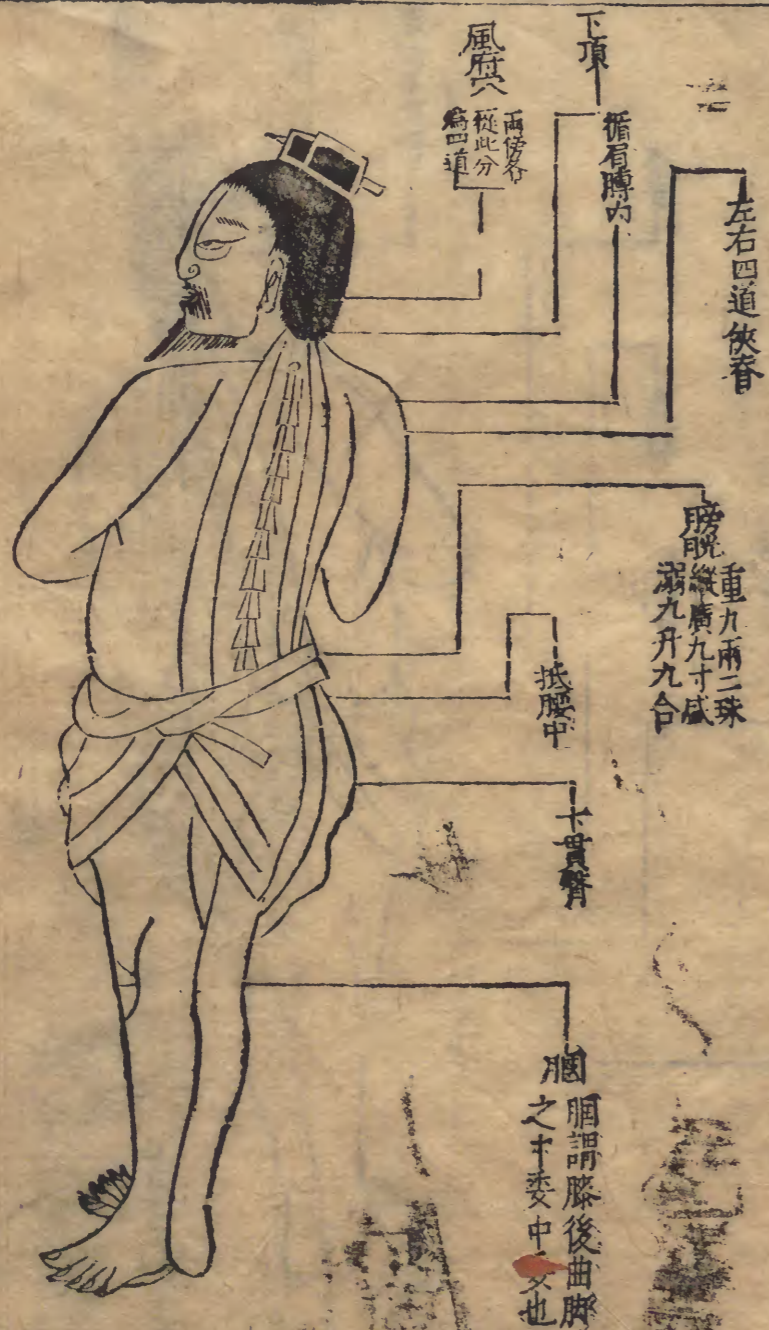 左右四道俠脊
下項
循肩膊內
風府穴
兩傍各
從此分
為四道
膀胱
重九兩二珠
縱廣九寸盛
溺九升九合
抵腰中
下貫臀
膕
膕謂膝後曲脚
之中委中也